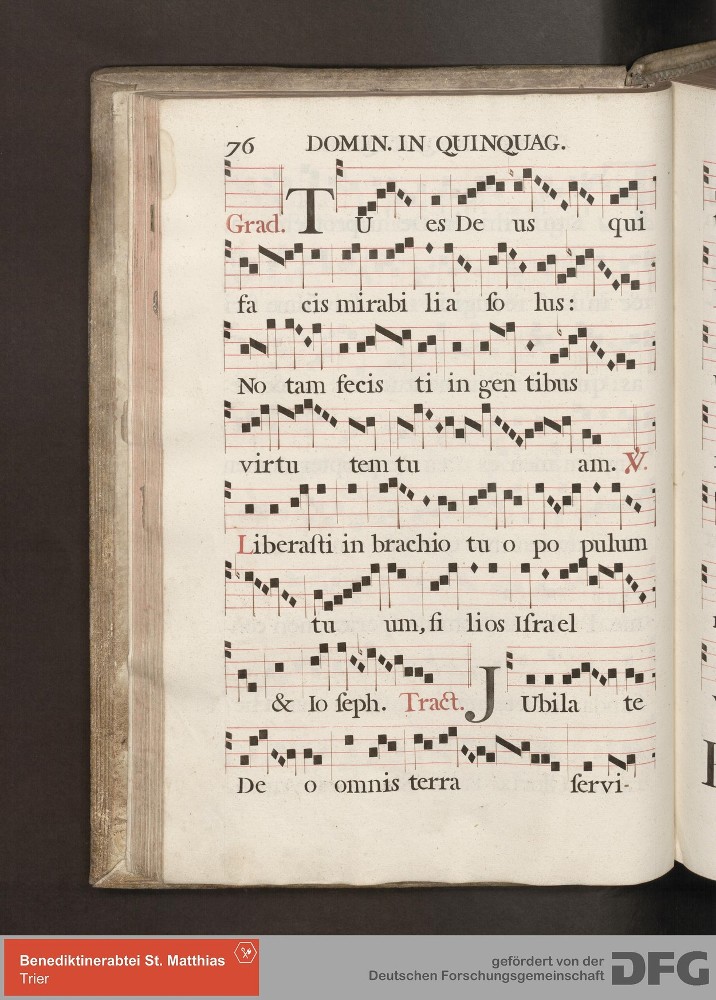 76 DOMIN. IN QUINQUAG.
Grad. TU es De us qui
fa cis mirabi li a ſo lus:
No tam fecis ti in gen tibus
virtu tem tu am. ℣.
Liberaſti in brachio tu o po pulum
tu um, fi lios Iſrael
& Io ſeph. Tract. JUbila te
De o omnis terra ſervi-
Benediktinerabtei St. Matthias
Trier
gefördert von der
Deutschen Forschungsgemeinschaft DFG